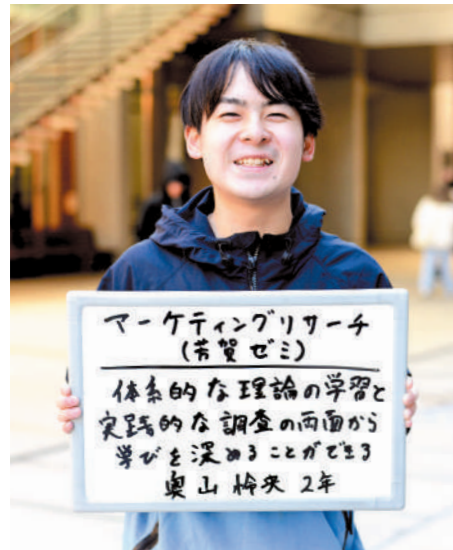 マーケティングリサーチ
(芳賀ゼミ)
体系的な理論の学習と
実践的な調査の両面から
学びを深めることができる
奥山怜央 2年